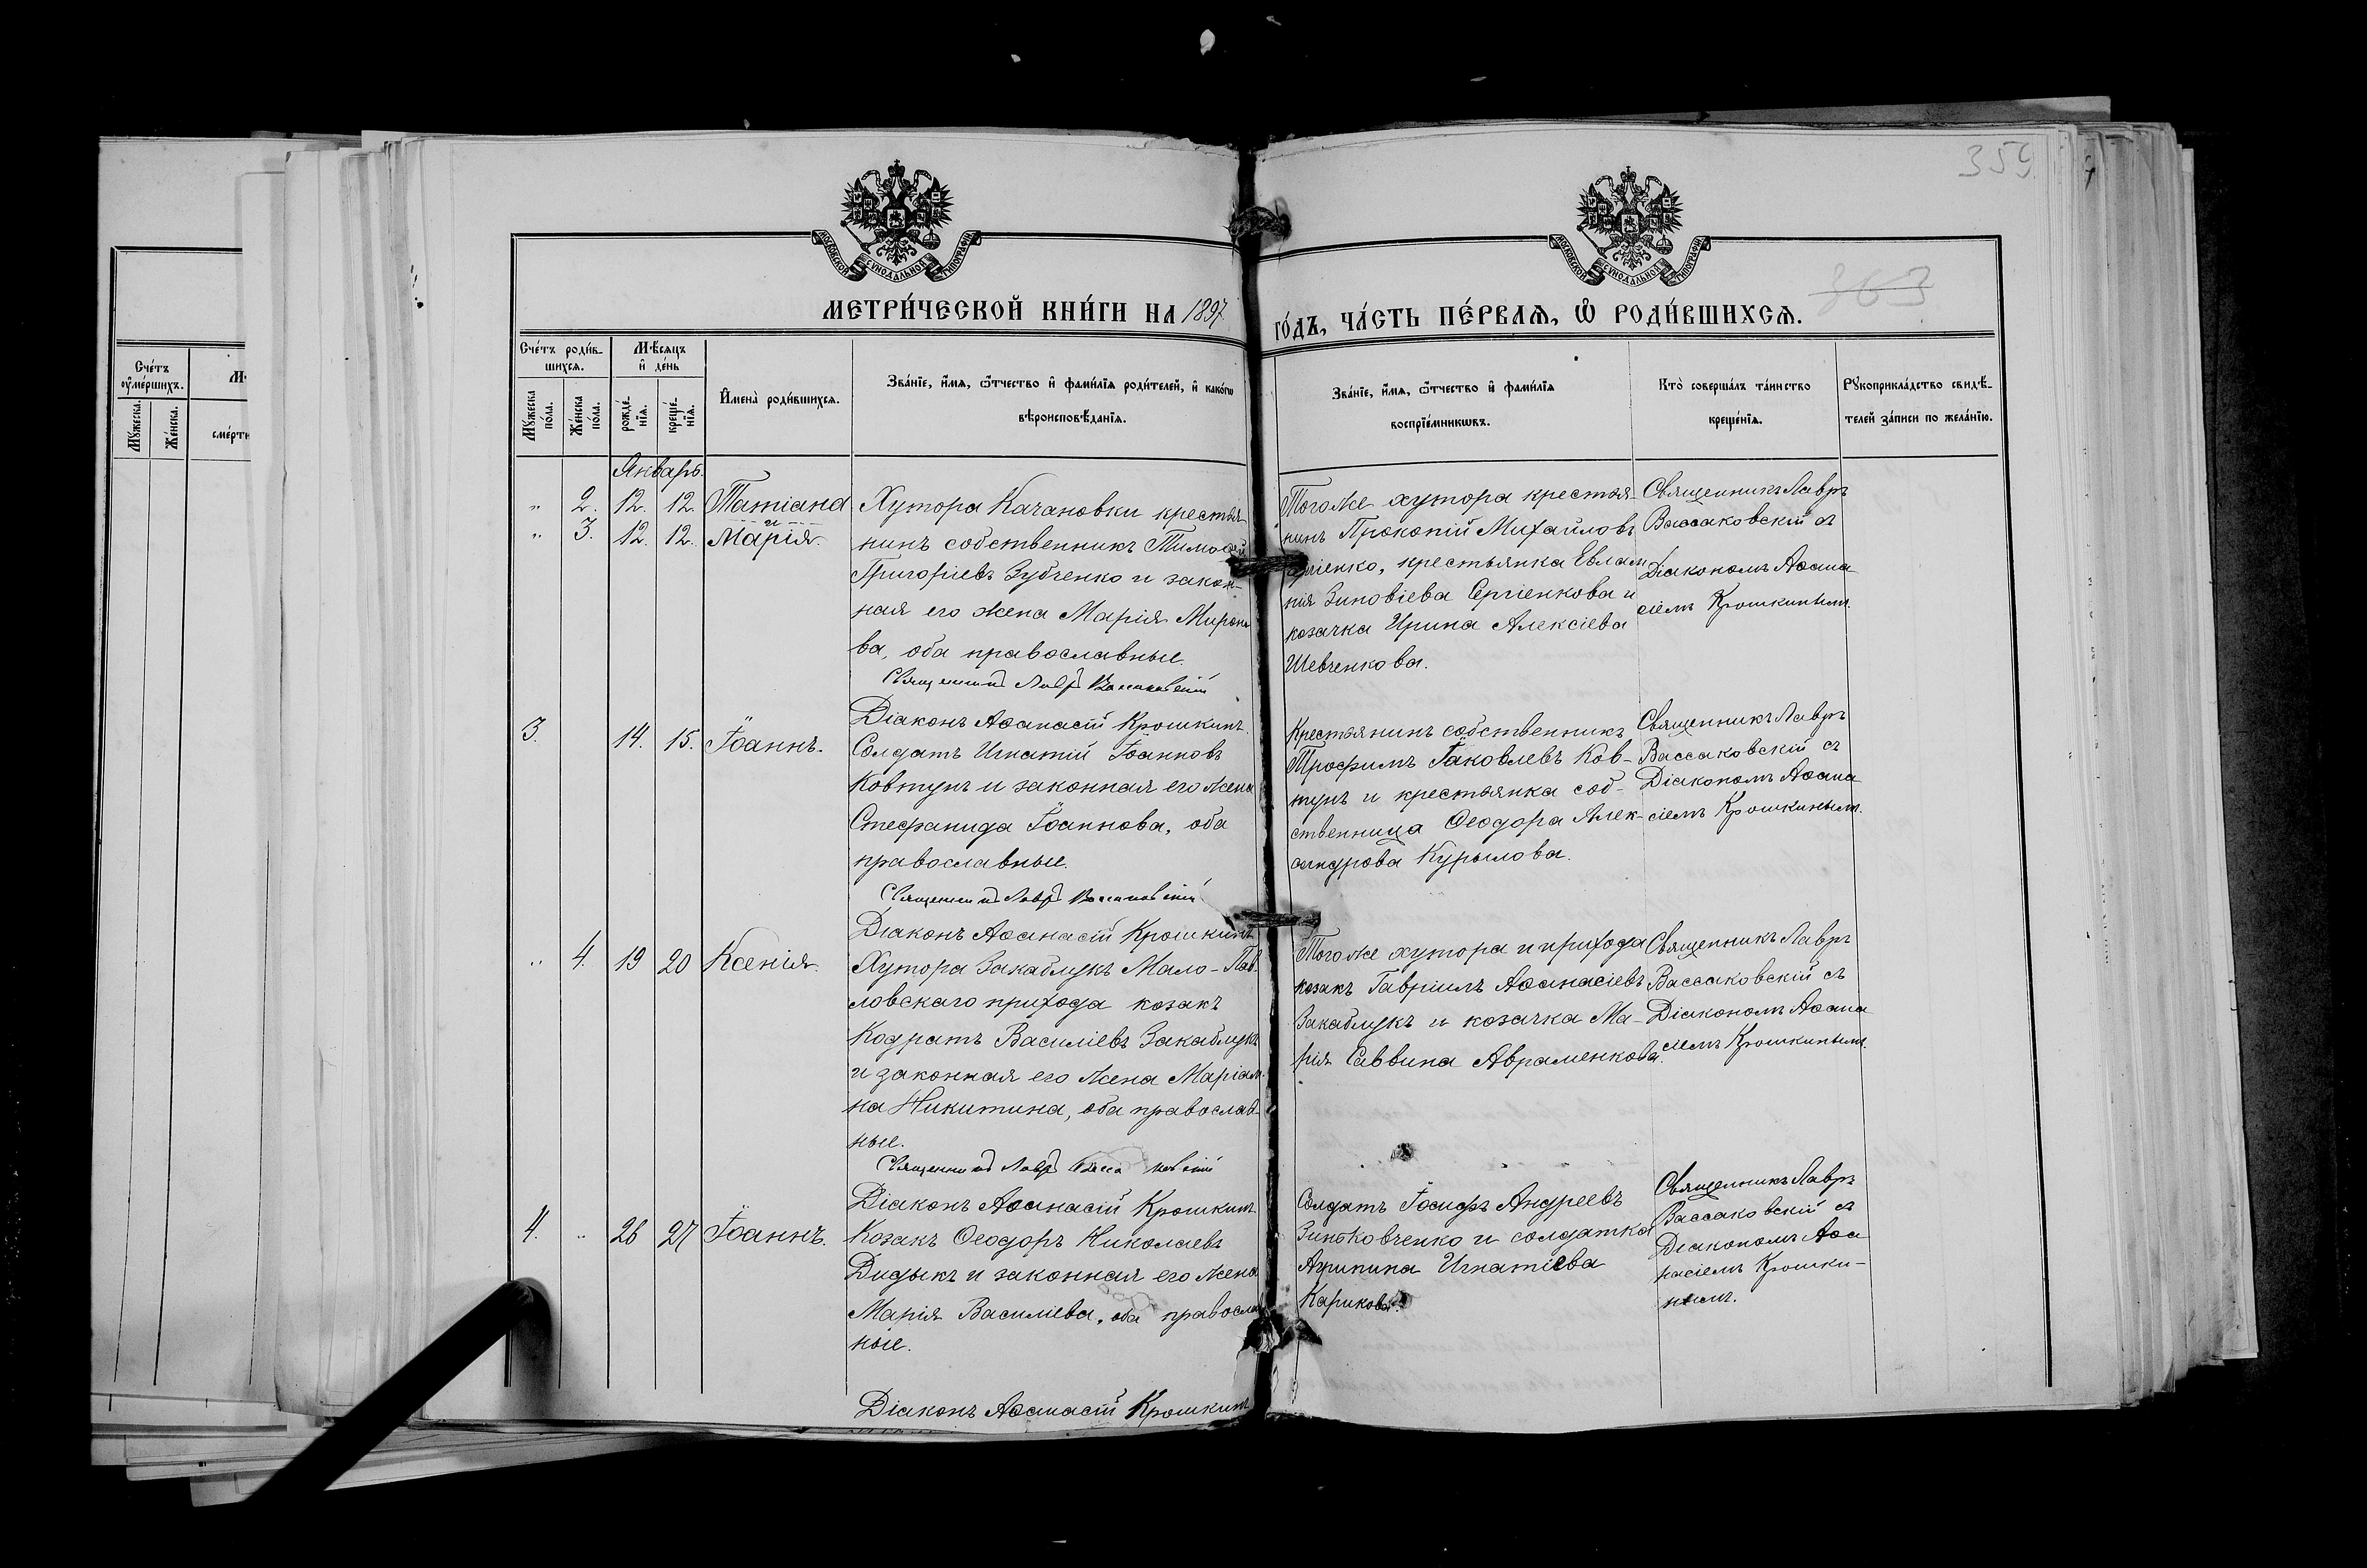 359
363
МОСКОВСКОЙ СУНОДАЛЬНОЙ ТИПОГРАФІИ
МОСКОВСКОЙ СУНОДАЛЬНОЙ ТИПОГРАФІИ
МЕТРИ́ЧЕСКОЙ КНИ́ГИ НА 1897 ГО́ДЪ, ЧА́СТЬ ПЕ́РВАѦ, Ѡ РОДИ́ВШИХСѦ.
Сче́тъ ᲂу҆ме́ршихъ.
Мꙋ́жеска.
Же́нска.
сме́рти
Сче́тъ роди́в-
шихсѧ.
Мꙋ́жеска по́ла.
Же́нска по́ла.
Мѣ́сѧцъ и҆ де́нь
рожде́нїѧ.
креще́нїѧ.
И҆мена̀ роди́вшихсѧ.
Зва́нїе, и҆́мѧ, ѻ҆́тчество и҆ фами́лїѧ роди́телей, и҆ како́гѡ
вѣроисповѣ́данїѧ.
Зва́нїе, и҆́мѧ, ѻ҆́тчество и҆ фами́лїѧ
воспрїе́мникѡвъ.
Кто̀ соверша́лъ та́инство
креще́нїѧ.
Рꙋкоприкла́дство свидѣ́-
телей за́писи по жела́нїю.
Январь.
" 2. 12. 12. Татіана
и
" 3. 12. 12. Марія.
Хутора Качановки крестья-
нинъ собственникъ Тимоѳей
Григоріевъ Зубченко и закон-
ная его жена Марія Миро­но
ва, оба православные.
Священникъ Лавръ Вассаковскій
Діаконъ Аѳанасій Крошкинъ.
Тогоже хутора крестья-
нинъ Прокопій Михайловъ
Сергіенко, крестьянка Евлам
пія Зиновіева Сергіенкова и
козачка Ирина Алексіева
Шевченкова.
Священникъ Лавръ
Вассаковскій съ
Діакономъ Аѳана
сіемъ Крошкинымъ.
3. 14. 15. Іоаннъ.
Солдатъ Игнатій Іоанновъ
Ковтунъ и законная его жена
Стефанида Іоаннова, оба
православные.
Священникъ Лавръ Вассаковскій
Діаконъ Аѳанасій Крошкинъ
Крестьянинъ собственникъ
Трофимъ Іаковлевъ Ков-
тунъ и крестьянка соб-
ственница Ѳеодора Алек-
сандрова Курылова.
Священникъ Лавръ
Вассаковскій съ
Діакономъ Аѳана
сіемъ Крошкинымъ.
" 4. 19 20 Ксенія.
Хутора Закаблукъ Мало-Пав-
ловскаго прихода козакъ
Кодратъ Василіевъ Закаблукъ
и законная его жена Маріам-
на Никитина, оба православ-
ные.
Священникъ Лавръ Вассаковскій
Діаконъ Аѳанасій Крошкинъ
Тогоже хутора и прихода
козакъ Гавріилъ Аѳанасіевъ
Закаблукъ и козачка Ма-
рія Саввина Авраменкова.
Священникъ Лавръ
Вассаковскій съ
Діакономъ Аѳана
сіемъ Крошкинымъ.
4. " 26 27 Іоаннъ.
Козакъ Ѳеодоръ Николаевъ
Дидыкъ и законная его жена
Марія Василіева, оба православ
ные.
Діаконъ Аѳанасій Крошкинъ
Солдатъ Іосифъ Андреевъ
Зинковченко и солдатка
Агрипина Игнатіева
Карикова.
Священникъ Лавръ
Вассаковскій съ
Діакономъ Аѳа
насіемъ Крошки-
нымъ.